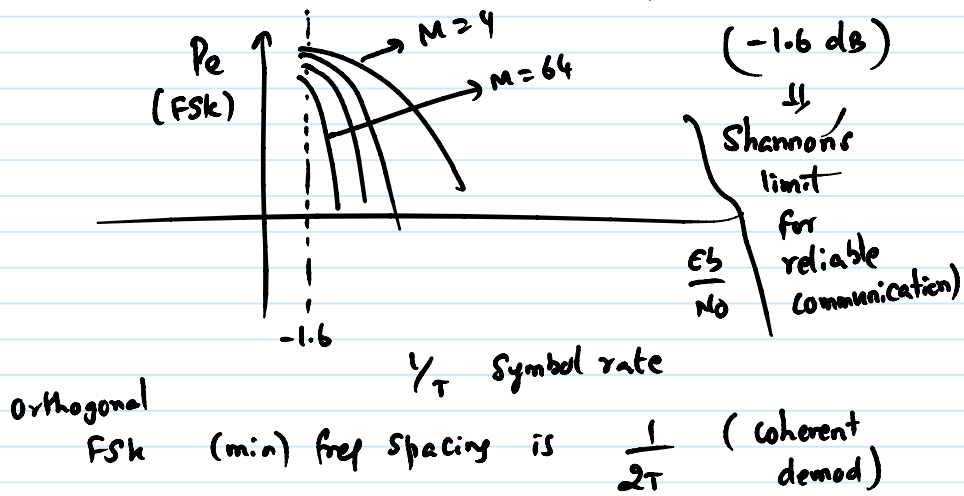 Pe
(FSK)
M = 4
M = 64
(-1.6 dB)
⇓
Shannon's
limit
for
reliable
communication)
Eb
N0
-1.6
1/T Symbol rate
Orthogonal
FSK (min) freq spacing is 1/2T (coherent
demod)